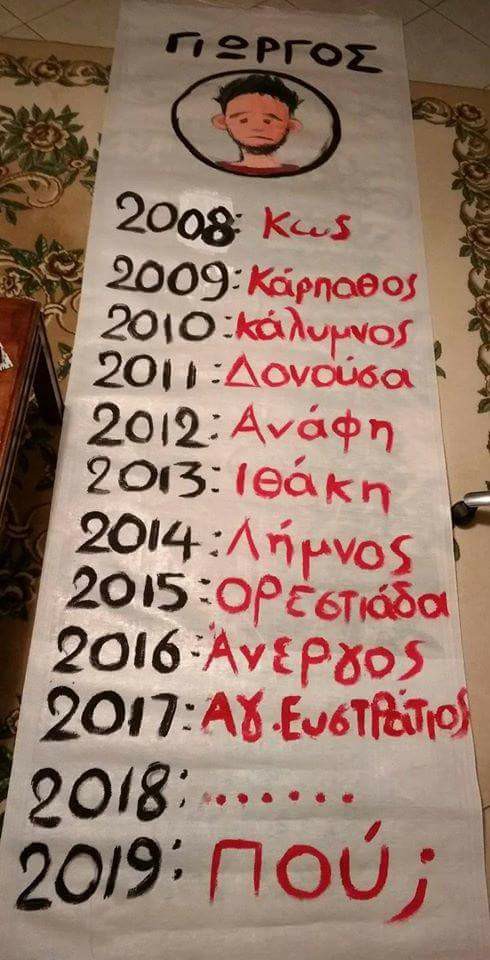 ΓΙΩΡΓΟΣ
2008: Κως
2009: Κάρπαθος
2010: Κάλυμνος
2011: Δονούσα
2012: Ανάφη
2013: Ιθάκη
2014: Λήμνος
2015: ΟΡΕΣΤΙάδα
2016: Άνεργος
2017: Αγ. ΕυσΤΡάΤιος
2018: .......
2019: Πού;